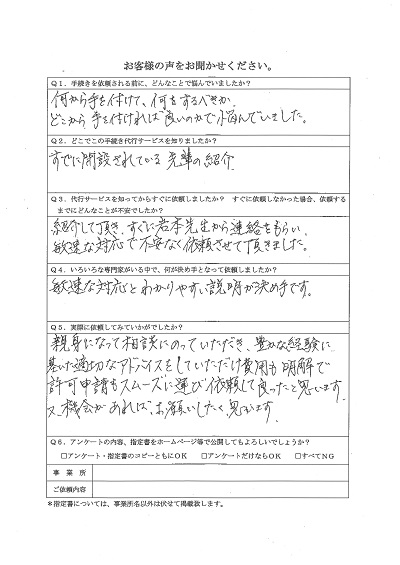 お客様の声をお聞かせください。
Q1．手続きを依頼される前に、どんなことで悩んでいましたか？
何から手を付けて、何をするべきか、
どこから手を付ければ良いのかで悩んでいました。
Q2．どこでこの手続き代行サービスを知りましたか？
すでに開設されている先輩の紹介
Q3．代行サービスを知ってからすぐに依頼しましたか？ すぐに依頼しなかった場合、依頼する
までにどんなことが不安でしたか？
紹介して頂き、すぐに岩本先生から連絡をもらい、
敏速な対応で不安なく依頼させて頂きました。
Q4．いろいろな専門家がいる中で、何が決め手となって依頼しましたか？
敏速な対応とわかりやすい説明が決め手です。
Q5．実際に依頼してみていかがでしたか？
親身になって相談にのっていただき、豊かな経験に
基いた適切なアドバイスをしていただけ費用も明解で
許可申請もスムーズに運び依頼して良ったと思います。
又、機会があれば、お願いしたく思います。
Q6．アンケートの内容、指定書をホームページ等で公開してもよろしいでしょうか？
□アンケート・指定書のコピーともにOK □アンケートだけならOK □すべてNG
事業所
ご依頼内容
＊指定書については、事業所名以外は伏せて掲載致します。